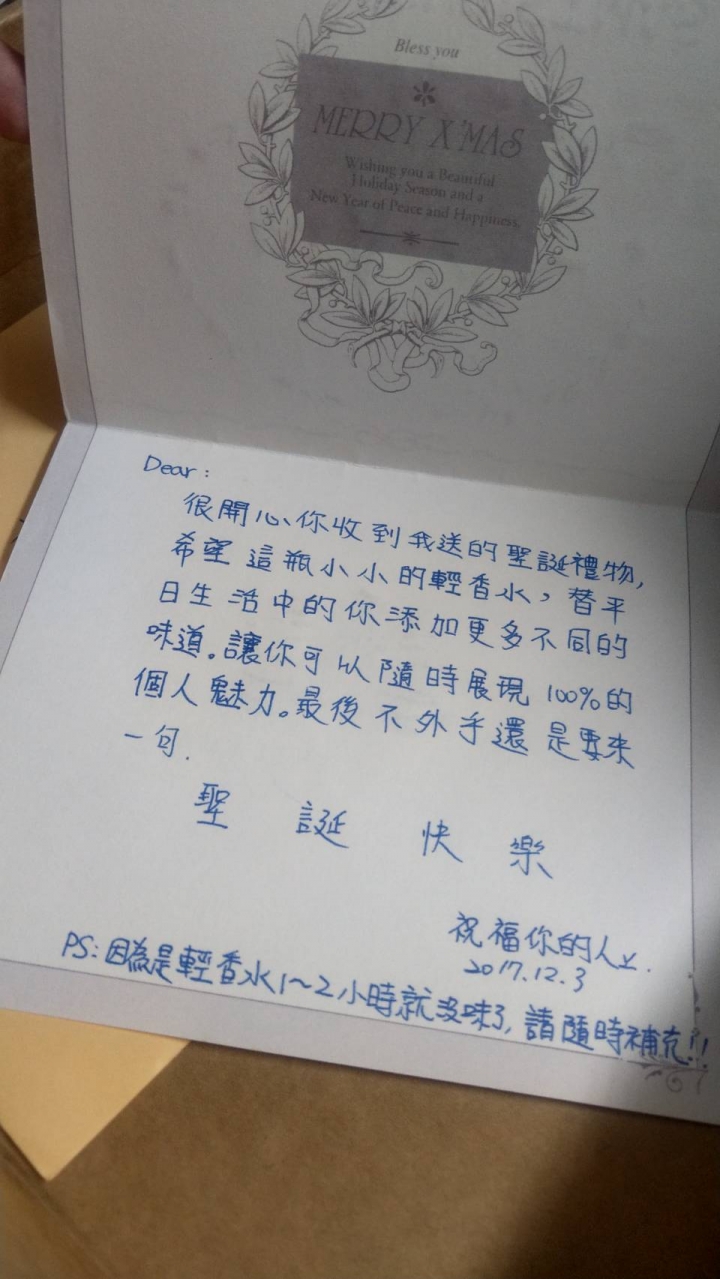 Bless you
MERRY X'MAS
Wishing you a Beautiful
Holiday Season and a
New Year of Peace and Happiness.
Dear:
很開心你收到我送的聖誕禮物,
希望這瓶小小的輕香水,替平
日生活中的你添加更多不同的
味道。讓你可以隨時展現100%的
個人魅力。最後不外乎還是要來
一句.
聖誕快樂
祝福你的人上.
2017.12.3
PS:因為是輕香水1~2小時就沒味了,請隨時補充!!